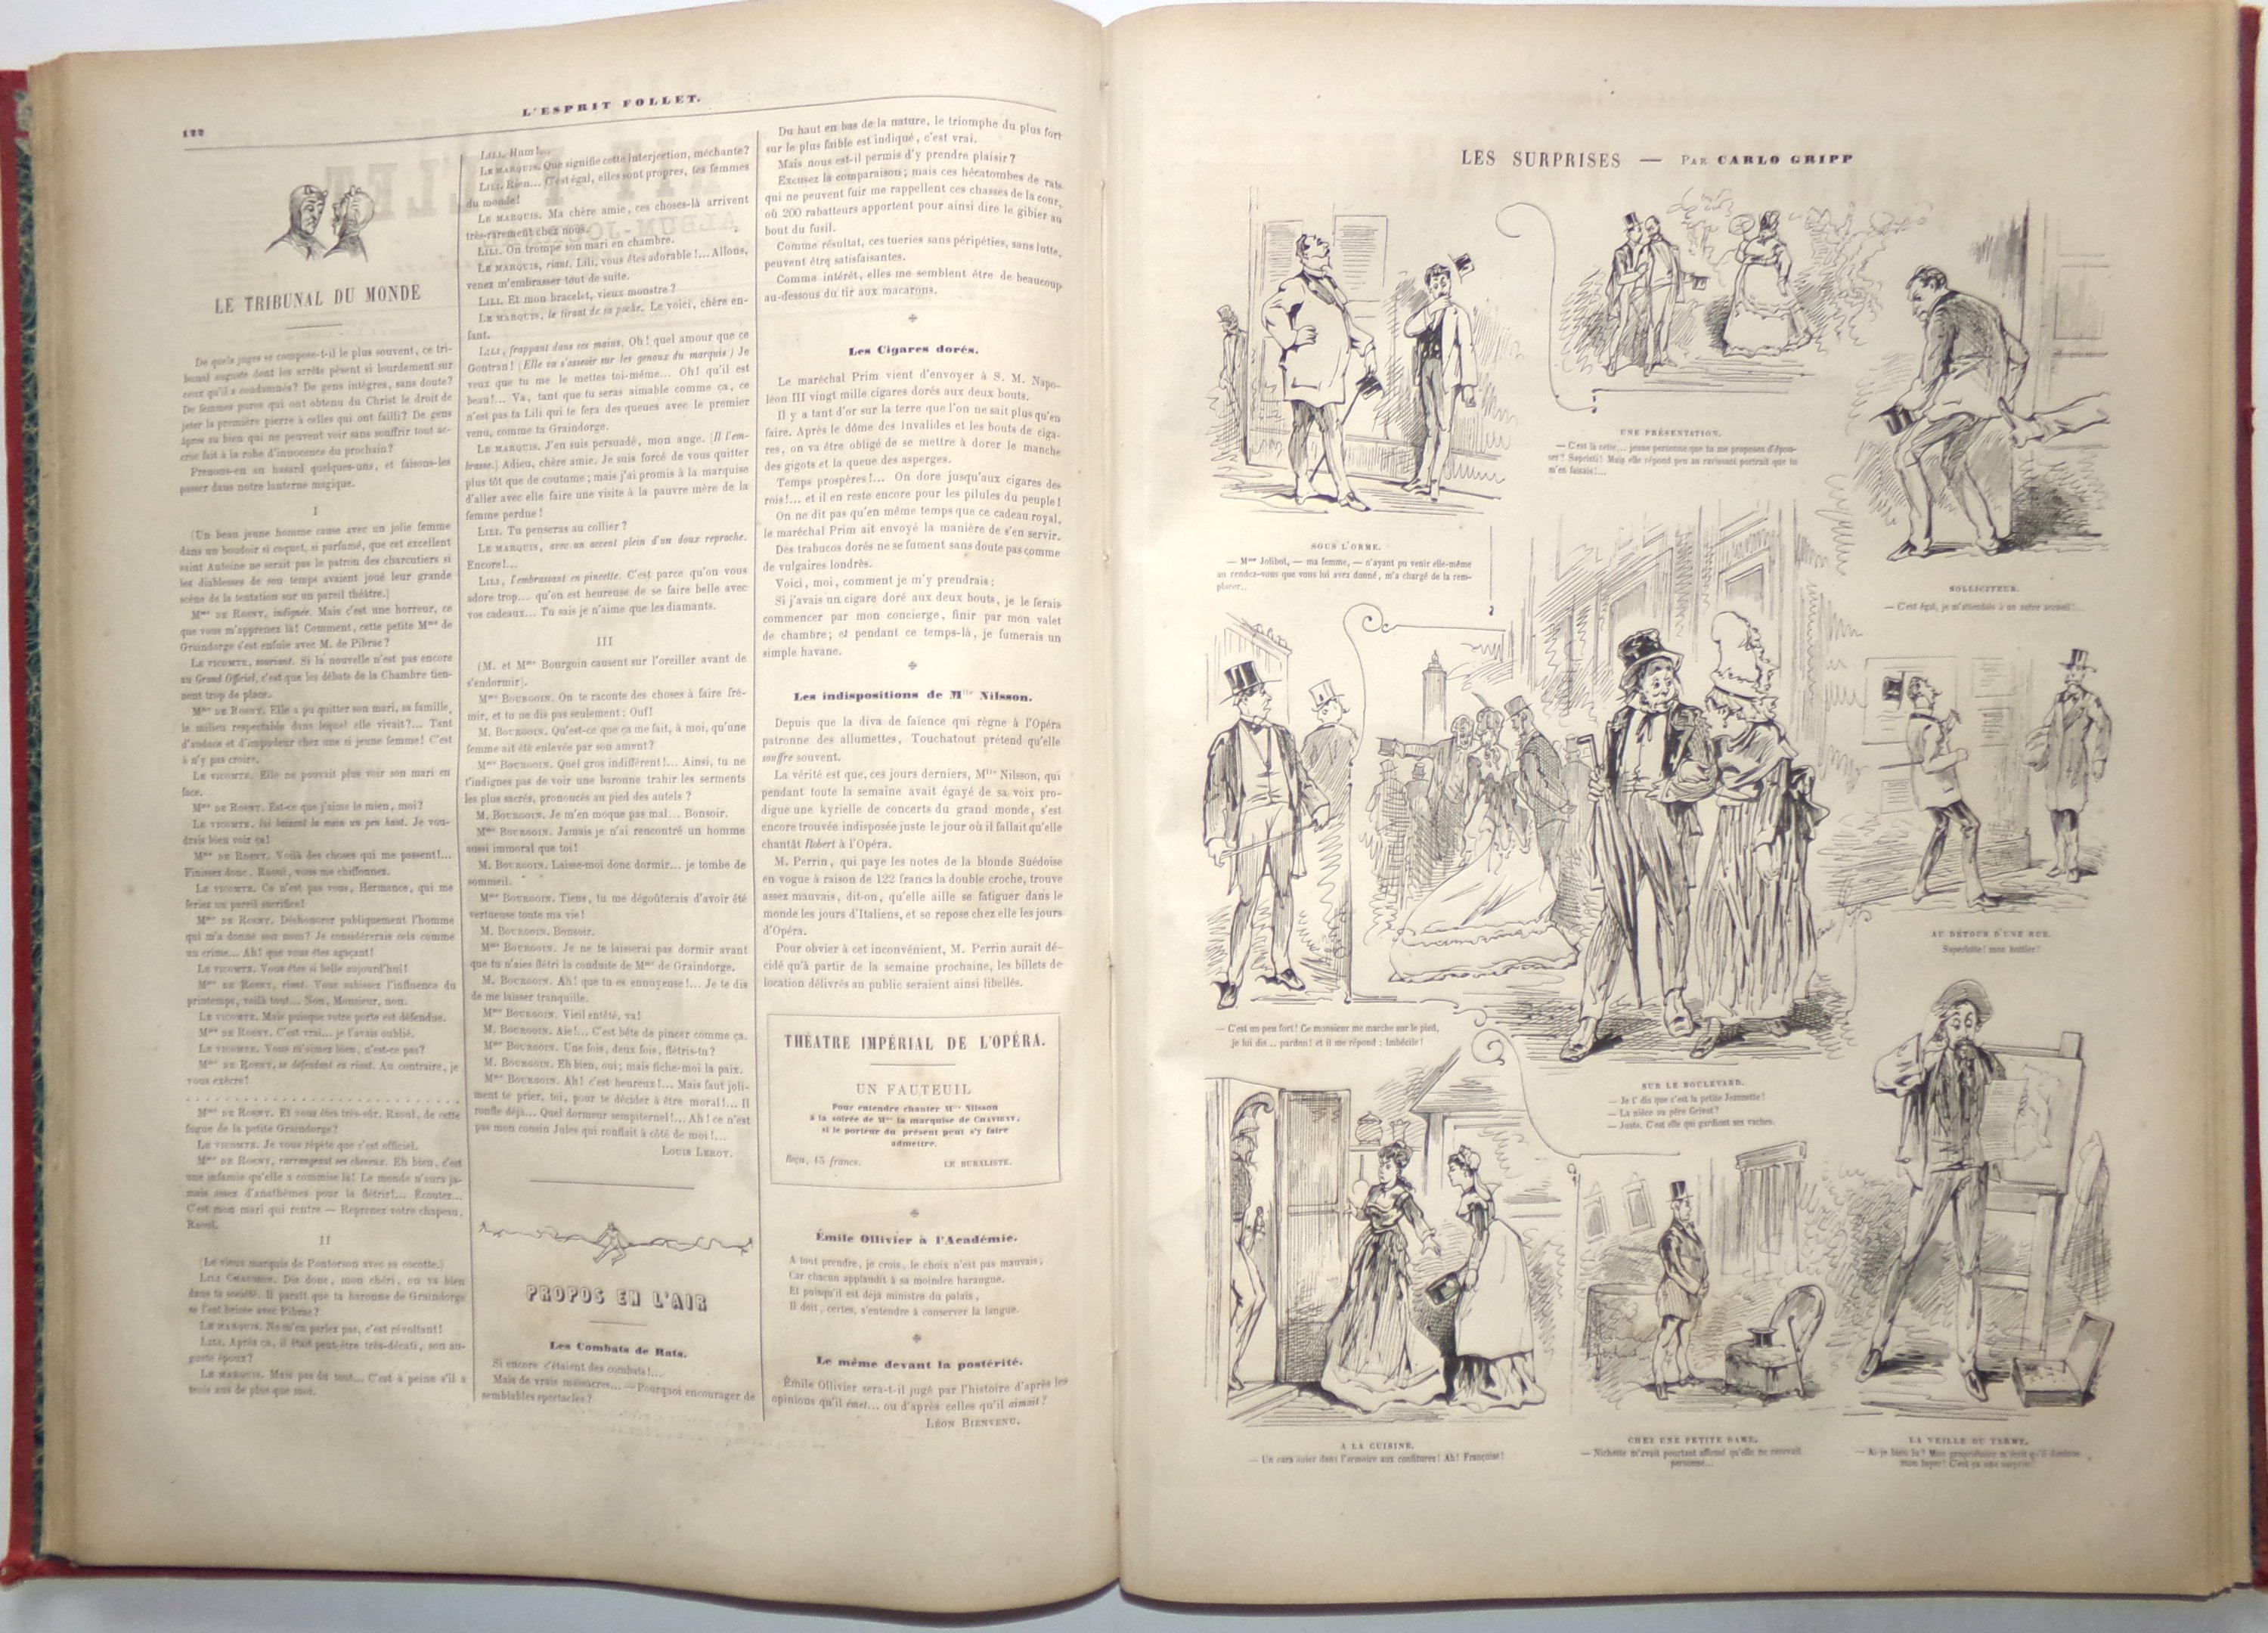 122
L'ESPRIT FOLLET.
LE TRIBUNAL DU MONDE
De quels juges se compose-t-il le plus souvent, ce tri-
bunal auguste dont les arrêts pèsent si lourdement sur
ceux qu'il a condamnés? De gens intègres, sans doute?
De femmes pures qui ont obtenu du Christ le droit de
jeter la première pierre à celles qui ont failli? De gens
âpres au bien qui ne peuvent voir sans souffrir tout ac-
croc fait à la robe d'innocence du prochain?
Prenons-en au hasard quelques-uns, et faisons-les
passer dans notre lanterne magique.
I
(Un beau jeune homme cause avec un jolie femme
dans un boudoir si coquet, si parfumé, que cet excellent
saint Antoine ne serait pas le patron des charcutiers si
les diablesses de son temps avaient joué leur grande
scène de la tentation sur un pareil théâtre.)
Mme DE ROSNY, indignée. Mais c'est une horreur, ce
que vous m'apprenez là! Comment, cette petite Mme de
Graindorge s'est enfuie avec M. de Pibrac?
LE VICOMTE, souriant. Si la nouvelle n'est pas encore
au Grand Officiel, c'est que les débats de la Chambre tien-
nent trop de place.
Mme DE ROSNY. Elle a pu quitter son mari, sa famille,
le milieu respectable dans lequel elle vivait?... Tant
d'audace et d'impudeur chez une si jeune femme! C'est
à n'y pas croire.
LE VICOMTE. Elle ne pouvait plus voir son mari en
face.
Mme DE ROSNY. Est-ce que j'aime le mien, moi?
LE VICOMTE, lui baisant la main un peu haut. Je vou-
drais bien voir ça!
Mme DE ROSNY. Voilà des choses qui me passent!...
Finissez donc, Raoul, vous me chiffonnez.
LE VICOMTE. Ce n'est pas vous, Hermance, qui me
feriez un pareil sacrifice!
Mme DE ROSNY. Déshonorer publiquement l'homme
qui m'a donné son nom? Je considérerais cela comme
un crime... Ah! que vous êtes agaçant!
LE VICOMTE. Vous êtes si belle aujourd'hui!
Mme DE ROSNY, riant. Vous subissez l'influence du
printemps, voilà tout... Non, Monsieur, non.
LE VICOMTE. Mais puisque votre porte est défendue.
Mme DE ROSNY. C'est vrai... je l'avais oublié.
LE VICOMTE. Vous m'aimez bien, n'est-ce pas?
Mme DE ROSNY, se défendant en riant. Au contraire, je
vous exècre!
. . . . . . . . . . . . . . . . . . . . . . . .
Mme DE ROSNY. Et vous êtes très-sûr, Raoul, de cette
fugue de la petite Graindorge?
LE VICOMTE. Je vous répète que c'est officiel.
Mme DE ROSNY, rarrangeant ses cheveux. Eh bien, c'est
une infamie qu'elle a commise là! Le monde n'aura ja-
mais assez d'anathèmes pour la flétrir!... Écoutez...
C'est mon mari qui rentre — Reprenez votre chapeau,
Raoul.
II
(Le vieux marquis de Pontorson avec sa cocotte.)
LILI Dis donc, mon chéri, on va bien
dans ta société. Il paraît que ta baronne de Graindorge
se l'est brisée avec Pibrac?
LE MARQUIS. Ne m'en parlez pas, c'est révoltant!
LILI. Après ça, il était peut-être très-décati, son au-
guste époux?
LE MARQUIS. Mais pas du tout... C'est à peine s'il a
trois ans de plus que moi.
LILI. Hum!...
LE MARQUIS. Que signifie cette interjection, méchante?
LILI. Rien... C'est égal, elles sont propres, tes femmes
du monde!
LE MARQUIS. Ma chère amie, ces choses-là arrivent
très-rarement chez nous.
LILI. On trompe son mari en chambre.
LE MARQUIS, riant. Lili, vous êtes adorable!... Allons,
venez m'embrasser tout de suite.
LILI. Et mon bracelet, vieux monstre?
LE MARQUIS, le tirant de sa poche. Le voici, chère en-
fant.
LILI, frappant dans ses mains. Oh! quel amour que ce
Gontran! (Elle va s'asseoir sur les genoux du marquis.) Je
veux que tu me le mettes toi-même... Oh! qu'il est
beau!... Va, tant que tu seras aimable comme ça, ce
n'est pas ta Lili qui te fera des queues avec le premier
venu, comme ta Graindorge.
LE MARQUIS. J'en suis persuadé, mon ange. (Il l'em-
brasse.) Adieu, chère amie. Je suis forcé de vous quitter
plus tôt que de coutume; mais j'ai promis à la marquise
d'aller avec elle faire une visite à la pauvre mère de la
femme perdue!
LILI. Tu penseras au collier?
LE MARQUIS, avec un accent plein d'un doux reproche.
Encore!...
LILI, l'embrassant en pincette. C'est parce qu'on vous
adore trop... qu'on est heureuse de se faire belle avec
vos cadeaux... Tu sais je n'aime que les diamants.
III
(M. et Mme Bourgoin causent sur l'oreiller avant de
s'endormir).
Mme BOURGOIN. On te raconte des choses à faire fré-
mir, et tu ne dis pas seulement: Ouf!
M. BOURGOIN. Qu'est-ce que ça me fait, à moi, qu'une
femme ait été enlevée par son amant?
Mme BOURGOIN. Quel gros indifférent!... Ainsi, tu ne
t'indignes pas de voir une baronne trahir les serments
les plus sacrés, prononcés au pied des autels?
M. BOURGOIN. Je m'en moque pas mal... Bonsoir.
Mme BOURGOIN. Jamais je n'ai rencontré un homme
aussi immoral que toi!
M. BOURGOIN. Laisse-moi donc dormir... je tombe de
sommeil.
Mme BOURGOIN. Tiens, tu me dégoûterais d'avoir été
vertueuse toute ma vie!
M. BOURGOIN. Bonsoir.
Mme BOURGOIN. Je ne te laisserai pas dormir avant
que tu n'aies flétri la conduite de Mme de Graindorge.
M. BOURGOIN. Ah! que tu es ennuyeuse!... Je te dis
de me laisser tranquille.
Mme BOURGOIN. Vieil entêté, va!
M. BOURGOIN. Aïe!... C'est bête de pincer comme ça.
Mme BOURGOIN. Une fois, deux fois, flétris-tu?
M. BOURGOIN. Eh bien, oui; mais fiche-moi la paix.
Mme BOURGOIN. Ah! c'est heureux!... Mais faut joli-
ment te prier, toi, pour te décider à être moral!... Il
ronfle déjà... Quel dormeur sempiternel!... Ah! ce n'est
pas mon cousin Jules qui ronflait à côté de moi!...
LOUIS LEROY.
PROPOS EN L'AIR
Les Combats de Rats.
Si encore c'étaient des combats!...
Mais de vrais massacres... — Pourquoi encourager de
semblables spectacles?
Du haut en bas de la nature, le triomphe du plus fort
sur le plus faible est indiqué, c'est vrai.
Mais nous est-il permis d'y prendre plaisir?
Excusez la comparaison; mais ces hécatombes de rats
qui ne peuvent fuir me rappellent ces chasses de la cour,
où 200 rabatteurs apportent pour ainsi dire le gibier au
bout du fusil.
Comme résultat, ces tueries sans péripéties, sans lutte,
peuvent être satisfaisantes.
Comme intérêt, elles me semblent être de beaucoup
au-dessous du tir aux macarons.
Les Cigares dorés.
Le maréchal Prim vient d'envoyer à S. M. Napo-
léon III vingt mille cigares dorés aux deux bouts.
Il y a tant d'or sur la terre que l'on ne sait plus qu'en
faire. Après le dôme des Invalides et les bouts de ciga-
res, on va être obligé de se mettre à dorer le manche
des gigots et la queue des asperges.
Temps prospères!... On dore jusqu'aux cigares des
rois!... et il en reste encore pour les pilules du peuple!
On ne dit pas qu'en même temps que ce cadeau royal,
le maréchal Prim ait envoyé la manière de s'en servir.
Des trabucos dorés ne se fument sans doute pas comme
de vulgaires londrès.
Voici, moi, comment je m'y prendrais:
Si j'avais un cigare doré aux deux bouts, je le ferais
commencer par mon concierge, finir par mon valet
de chambre; et pendant ce temps-là, je fumerais un
simple havane.
Les indispositions de Mlle Nilsson.
Depuis que la diva de faïence qui règne à l'Opéra
patronne des allumettes, Touchatout prétend qu'elle
souffre souvent.
La vérité est que, ces jours derniers, Mlle Nilsson, qui
pendant toute la semaine avait égayé de sa voix pro-
digue une kyrielle de concerts du grand monde, s'est
encore trouvée indisposée juste le jour où il fallait qu'elle
chantât Robert à l'Opéra.
M. Perrin, qui paye les notes de la blonde Suédoise
en vogue à raison de 122 francs la double croche, trouve
assez mauvais, dit-on, qu'elle aille se fatiguer dans le
monde les jours d'Italiens, et se repose chez elle les jours
d'Opéra.
Pour obvier à cet inconvénient, M. Perrin aurait dé-
cidé qu'à partir de la semaine prochaine, les billets de
location délivrés au public seraient ainsi libellés.
THÉATRE IMPÉRIAL DE L'OPÉRA.
UN FAUTEUIL
Pour entendre chanter Mlle Nilsson
à la soirée de Mme la marquise de CHAVIGNY,
si le porteur du présent peut s'y faire
admettre.
Reçu, 15 francs.
LE BURALISTE.
Émile Ollivier à l'Académie.
A tout prendre, je crois, le choix n'est pas mauvais,
Car chacun applaudit à sa moindre harangue.
Et puisqu'il est déjà ministre du palais,
Il doit, certes, s'entendre à conserver la langue.
Le même devant la postérité.
Émile Ollivier sera-t-il jugé par l'histoire d'après les
opinions qu'il émet... ou d'après celles qu'il aimait?
LÉON BIENVENU.
LES SURPRISES — PAR CARLO GRIPP
SOUS L'ORME.
— Mme Jolibot, — ma femme, — n'ayant pu venir elle-même
au rendez-vous que vous lui avez donné, m'a chargé de la rem-
placer..
UNE PRÉSENTATION.
— C'est là cette... jeune personne que tu me proposes d'épou-
ser? Sapristi! Mais elle répond peu au ravissant portrait que tu
m'en faisais!...
SOLLICITEUR.
— C'est égal, je m'attendais à un autre accueil!...
— C'est un peu fort! Ce monsieur me marche sur le pied,
je lui dis... pardon! et il me répond: Imbécile!
SUR LE BOULEVARD.
— Je t' dis que c'est la petite Jeannette!
— La nièce au père Grivot?
— Juste. C'est elle qui gardiont ses vaches.
AU DÉTOUR D'UNE RUE.
Saperlotte! mon bottier!
A LA CUISINE.
— Un cara osier dans l'armoire aux confitures! Ah! Françoise!
CHEZ UNE PETITE DAME.
— Nichette m'avait pourtant affirmé qu'elle ne recevait
personne...
LA VEILLE DU TERME.
— Ai-je bien lu? Mon propriétaire m'écrit qu'il diminue
mon loyer! C'est ça une surprise!